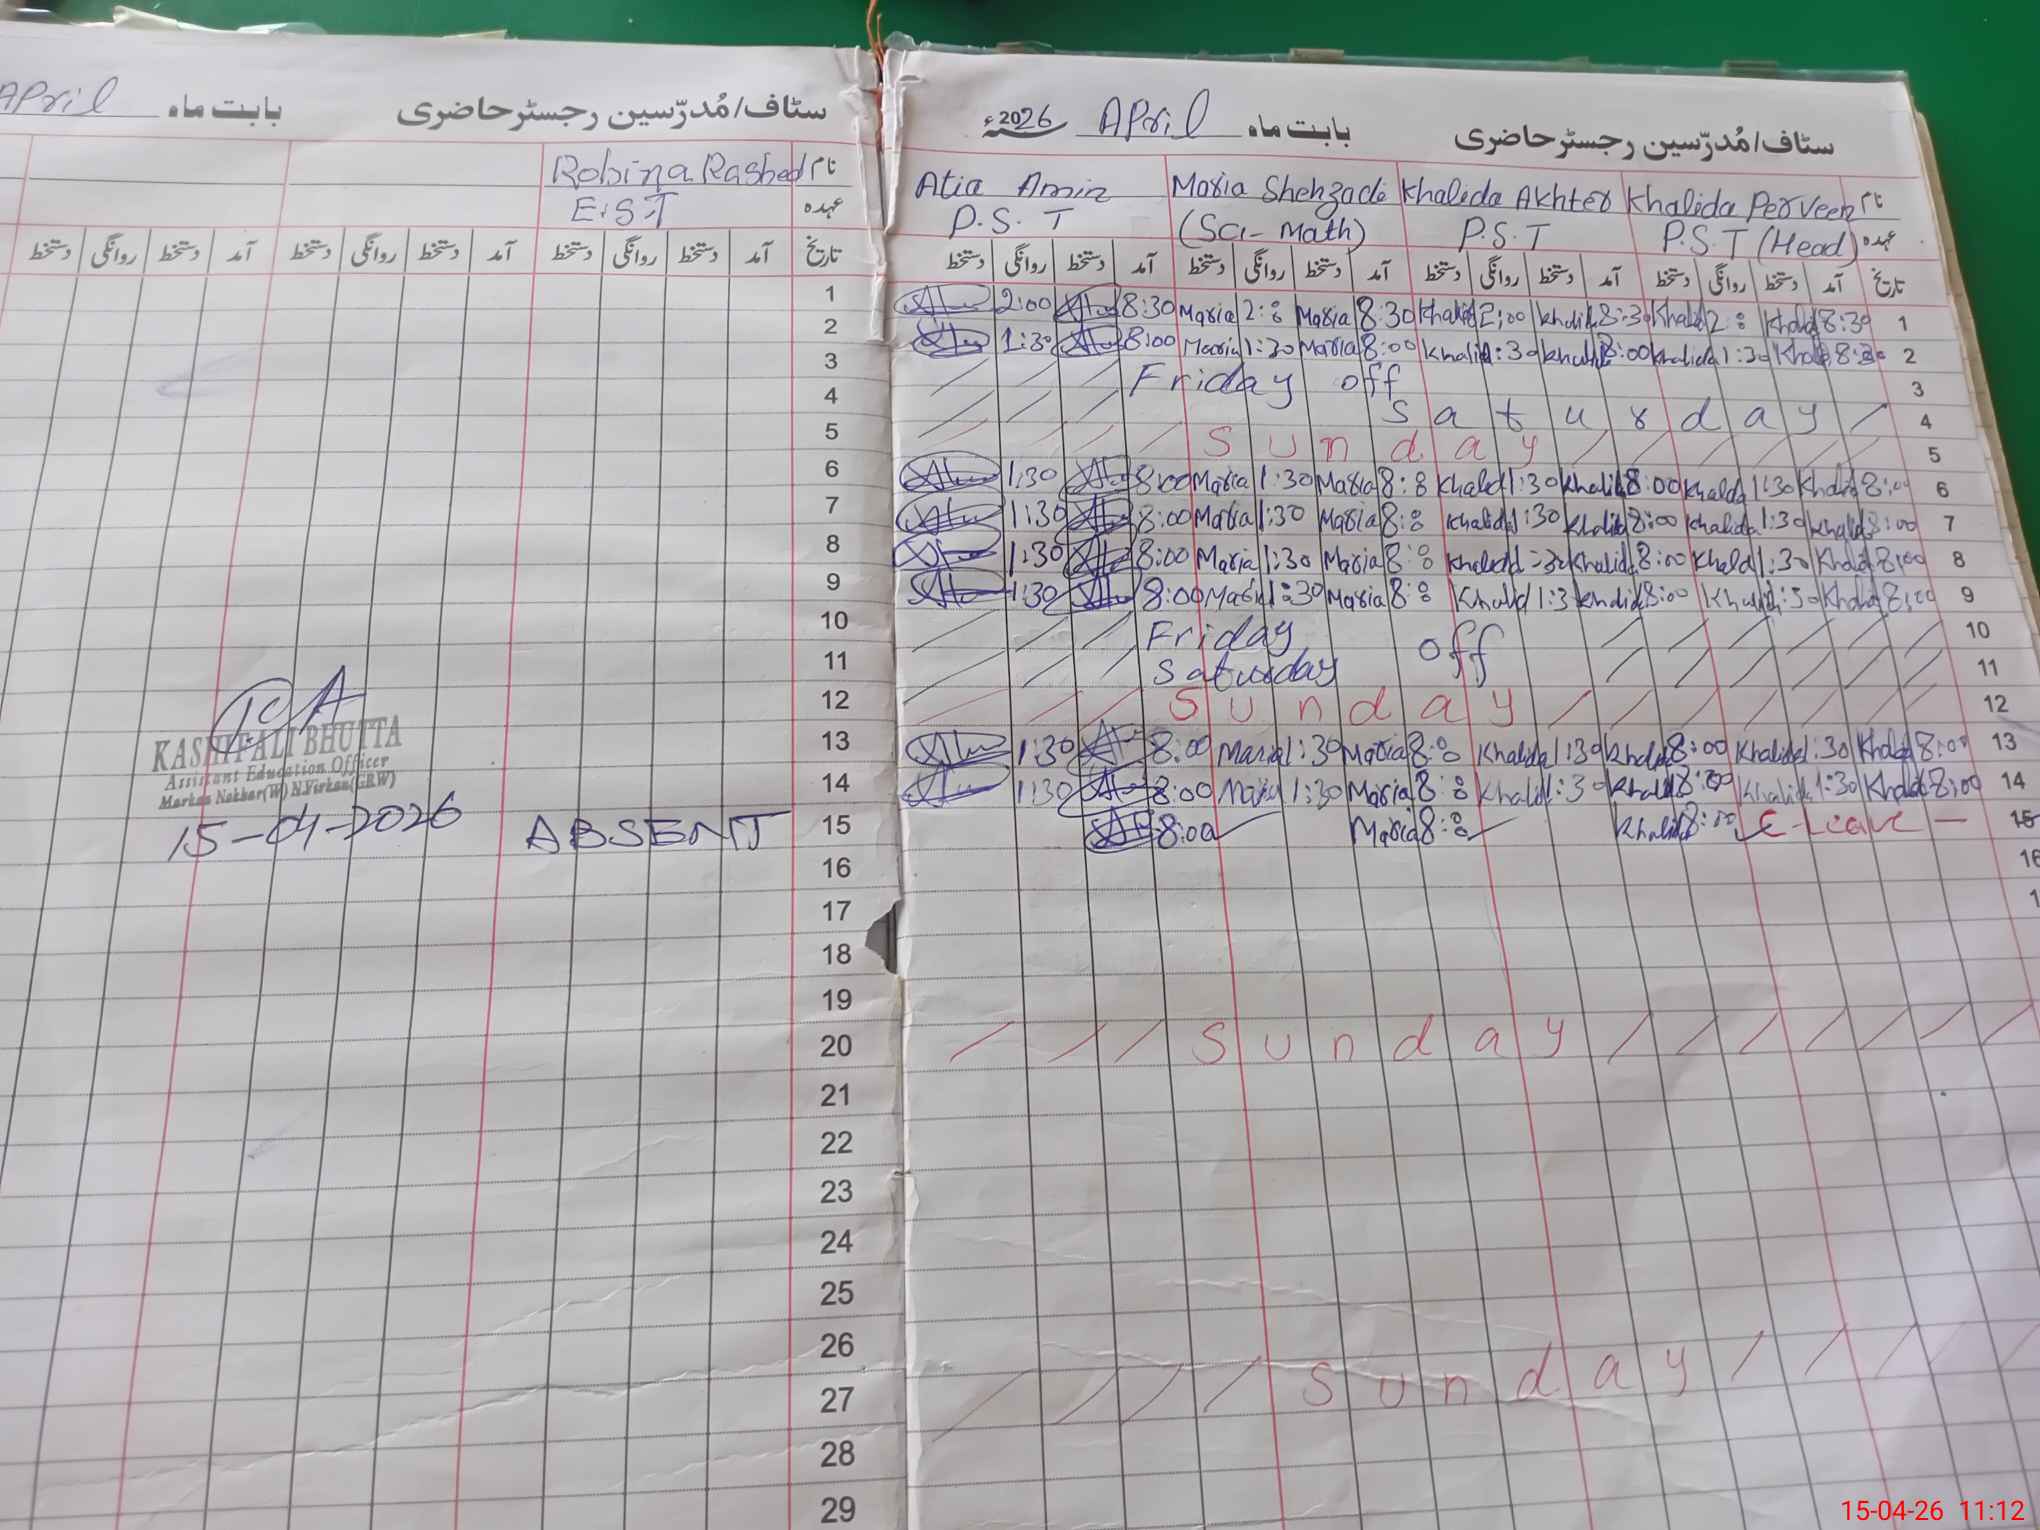 سٹاف/مُدرّسین رجسٹر حاضری بابت ماہ April
نام Robina Rasheed
عہدہ E.S.T
تاریخ آمد دستخط روانگی دستخط آمد دستخط روانگی دستخط آمد دستخط روانگی دستخط
1
2
3
4
5
6
7
8
9
10
11
12
13
14
15 ABSENT
16
17
18
19
20
21
22
23
24
25
26
27
28
29
KASHIF ALI BHUTTA
Assistant Education Officer
Markaz Nokhar(W) N.Virkan(GRW)
15-04-2026
سٹاف/مُدرّسین رجسٹر حاضری بابت ماہ April سنہ 2026ء
نام Atia Amin Maria Shehzadi Khalida Akhter Khalida Perveen
عہدہ P.S.T (Sci-Math) P.S.T P.S.T (Head)
تاریخ آمد دستخط روانگی دستخط آمد دستخط روانگی دستخط آمد دستخط روانگی دستخط آمد دستخط روانگی دستخط
2:00 8:30 Maria 2:8 Maria 8:30 Khalid 2:00 Khalid 8:30 Khalid 2:8 Khalid 8:30 1
1:30 8:00 Maria 1:30 Maria 8:00 Khalid 1:30 Khalid 8:00 Khalida 1:30 Khalid 8:30 2
Friday off 3
Saturday 4
Sunday 5
1:30 8:00 Maria 1:30 Maria 8:8 Khalid 1:30 Khalid 8:00 Khalda 1:30 Khalid 8:00 6
1:30 8:00 Maria 1:30 Maria 8:8 Khalida 1:30 Khalid 8:00 Khalida 1:30 Khalid 8:00 7
1:30 8:00 Maria 1:30 Maria 8:8 Khalid 1:30 Khalid 8:00 Khalid 1:30 Khalid 8:00 8
1:30 8:00 Maria 1:30 Maria 8:8 Khalid 1:3 Khalid 8:00 Khalid 1:30 Khalid 8:00 9
Friday off 10
Saturday 11
Sunday 12
1:30 8:00 Maria 1:30 Maria 8:8 Khalida 1:30 Khalid 8:00 Khalida 1:30 Khalid 8:00 13
1:30 8:00 Maria 1:30 Maria 8:8 Khalid 1:30 Khalid 8:00 Khalida 1:30 Khalid 8:00 14
8:00 Maria 8:8 Khalid 8:00 C-Leave 15
16
1
Sunday
Sunday
15-04-26 11:12